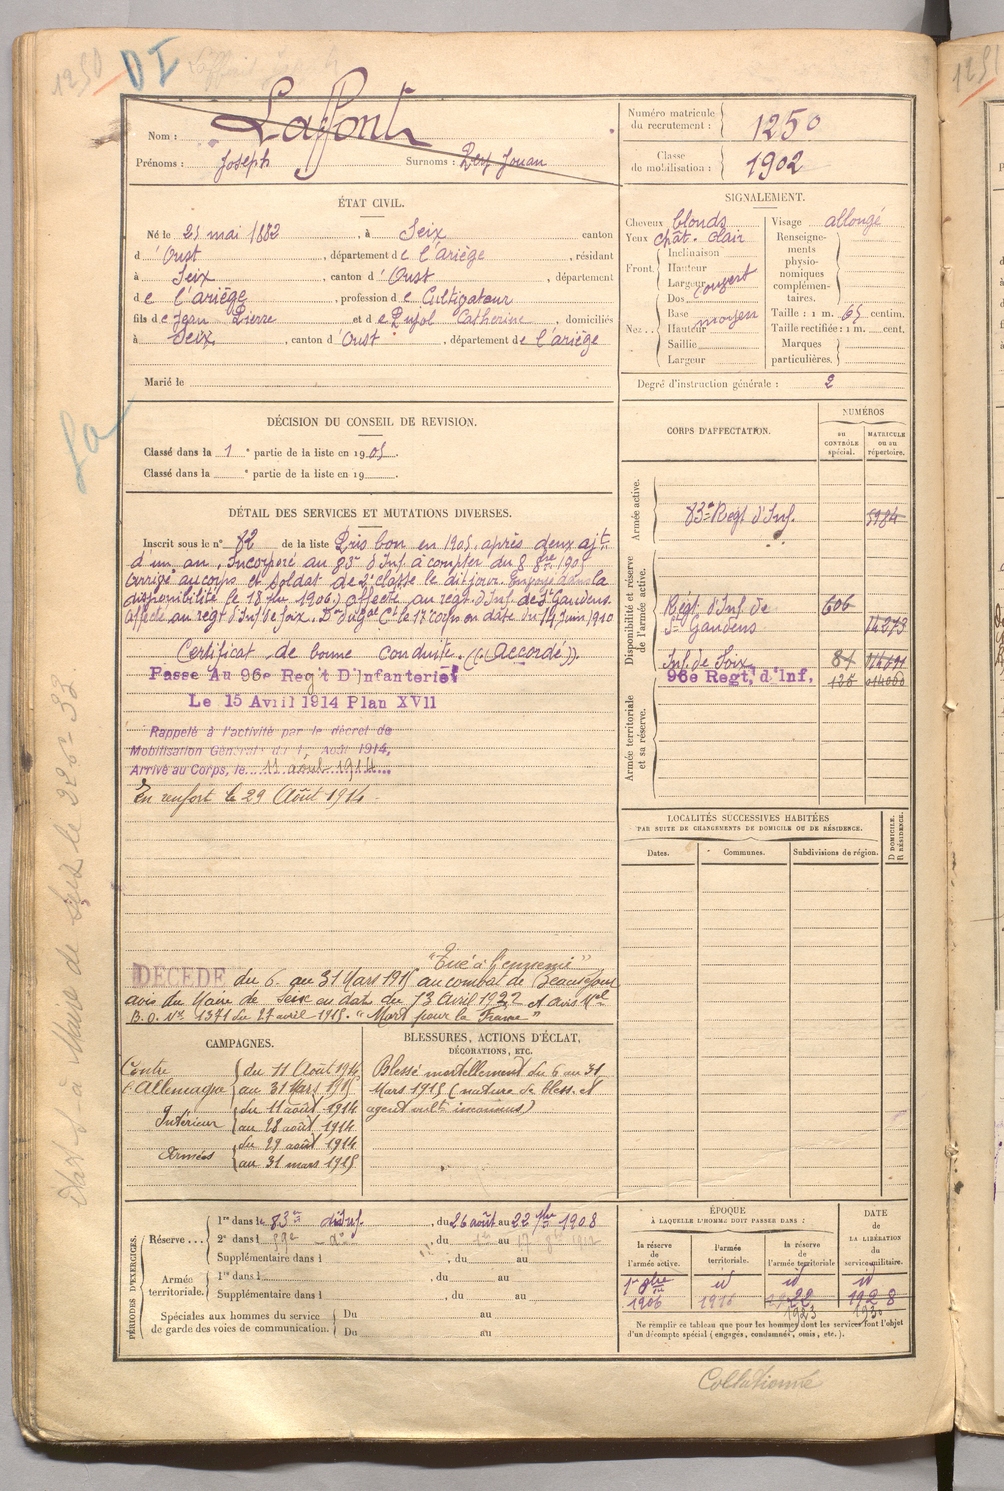 1250 DI
Nom : Laffont
Prénoms : Joseph Surnoms : Rey Jouan
Numéro matricule
du recrutement : 1250
Classe
de mobilisation : 1902
ÉTAT CIVIL.
Né le 25 mai 1882, à Seix canton
d'Oust, département de l'ariège, résidant
à Seix, canton d'Oust, département
de l'ariège, profession de Cultivateur
fils de Jean Pierre et de Pujol Catherine, domiciliés
à Seix, canton d'Oust, département de l'ariège
Marié le
SIGNALEMENT.
Cheveux blonds
Yeux chât. clair
Front. Inclinaison
Hauteur
Largeur couvert
Nez.. Dos
Base moyen
Hauteur
Saillie
Largeur
Visage allongé
Renseigne-
ments
physio-
nomiques
complémen-
taires.
Taille : 1 m. 65 centim.
Taille rectifiée : 1 m. cent.
Marques
particulières.
Degré d'instruction générale : 2
DÉCISION DU CONSEIL DE REVISION.
Classé dans la 1e partie de la liste en 1905.
Classé dans la e partie de la liste en 19 .
DÉTAIL DES SERVICES ET MUTATIONS DIVERSES.
Inscrit sous le n° 82 de la liste Pris bon en 1905, après deux ajts
d'un an, Incorporé au 83e d'Inf à compter du 8 8bre 1905
arrivé au corps et soldat de 2e classe le dit jour. Envoyé dans la
disponibilité le 18 1906. affecté au régt d'Inf. de St Gaudens.
Affecté au régt d'Inf de foix. Don du Gal Ct le 17e corps en date du 14 Juin 1910
Certificat de bonne conduite. ((Accordé)).
Passe Au 96e Reg't D'Infanterie
Le 15 Avril 1914 Plan XVII
Rappelé à l'activité par le décret de
Mobilisation Générale du 1er Août 1914,
Arrivé au Corps, le 11 août 1914
En renfort le 29 Août 1914
"Tué à l'ennemi"
DÉCÉDÉ du 6 au 31 Mars 1915 au combat de Beauséjour
avis du Maire de Seix en date du 13 Avril 1922 et avis
B.O. No 1371 du 27 avril 1915. "Mort pour la France"
CORPS D'AFFECTATION.
NUMÉROS
au
CONTRÔLE
spécial.
MATRICULE
ou au
répertoire.
Armée active.
83e Régt d'Inf. 5984
Disponibilité et réserve
de l'armée active.
Régt d'Inf de 606
St Gaudens 14273
Inf. de Foix 81
96e Regt, d'Inf, 125
Armée territoriale
et sa réserve.
LOCALITÉS SUCCESSIVES HABITÉES
PAR SUITE DE CHANGEMENTS DE DOMICILE OU DE RÉSIDENCE.
Dates. Communes. Subdivisions de région. D DOMICILE.
R RÉSIDENCE.
CAMPAGNES.
Contre du 11 Août 1914
l'Allemagne au 31 Mars 1915
Intérieur du 11 août 1914
au 28 août 1914
Armées du 29 août 1914
au 31 mars 1915
BLESSURES, ACTIONS D'ÉCLAT,
DÉCORATIONS, ETC.
Blessé mortellement du 6 au 31
Mars 1915 (nature de bless. et
agent vult inconnus)
PÉRIODES D'EXERCICES.
Réserve... 1re dans le 83e d'Inf., du 26 août au 22 7bre 1908
2e dans l 59e do, du au 17 1912
Supplémentaire dans l , du au
Armée
territoriale. 1re dans l , du au
Supplémentaire dans l , du au
Spéciales aux hommes du service
de garde des voies de communication. Du au
Du au
ÉPOQUE
À LAQUELLE L'HOMME DOIT PASSER DANS :
la réserve
de
l'armée active.
l'armée
territoriale.
la réserve
de
l'armée territoriale
DATE
de
LA LIBÉRATION
du
service militaire.
1er 8bre id id id
1906 1916 1922 1928
1923 1930
Ne remplir ce tableau que pour les hommes dont les services font l'objet
d'un décompte spécial (engagés, condamnés, omis, etc.).
Collationné